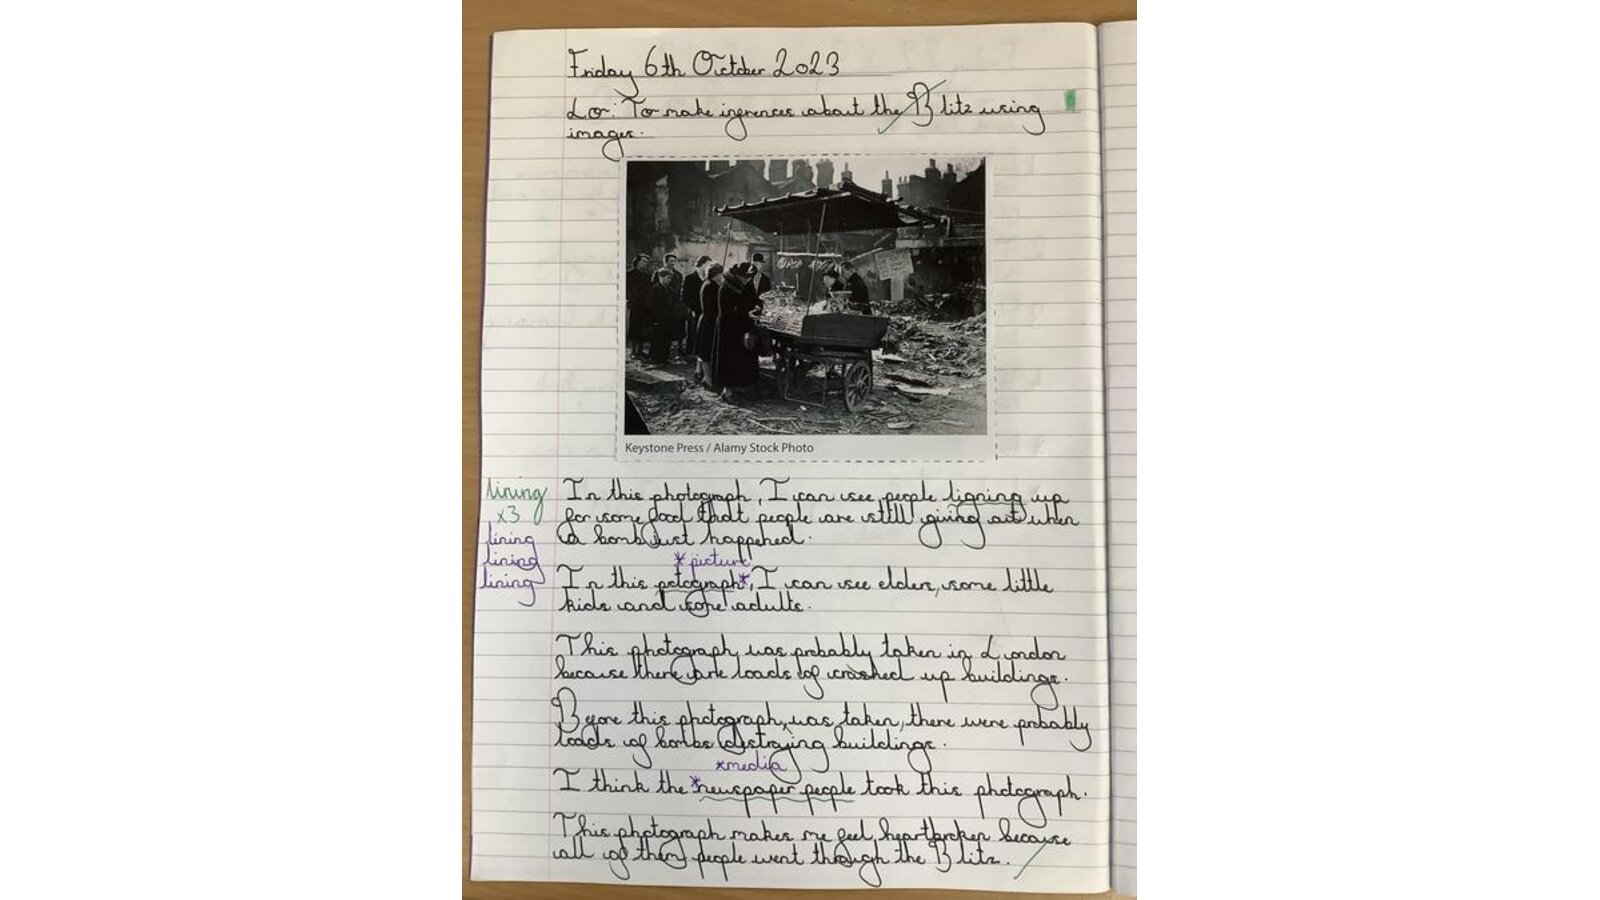 Friday 6th October 2023
Lo: To make infrences about the Blitz using
images.
Keystone Press / Alamy Stock Photo
lining
x3
lining
lining
lining
In this photograph, I can see people ligning up
for some food that people are still giving out when
a bomb just happened.
*picture
In this potograph*, I can see elders, some little
kids and some adults.
This photograph was probably taken in London
because there are loads of crashed up buildings.
Before this photograph was taken, there were probably
loads of bombs distroying buildings.
*media
I think the *newspaper people took this photograph.
This photograph makes me feel heartbroken because
all of them people went through the Blitz.